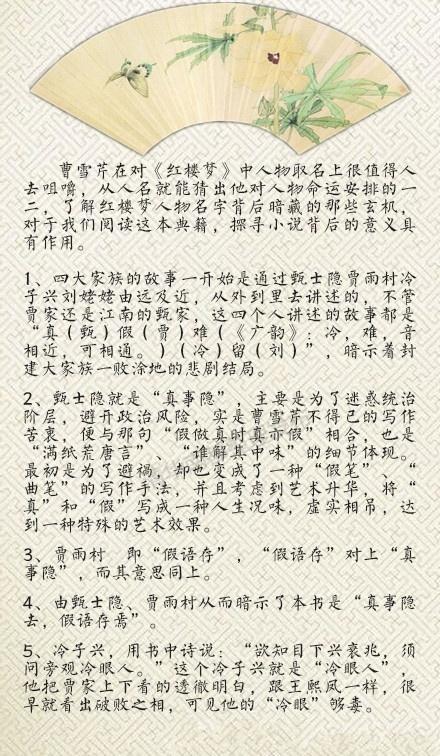 曹雪芹在对《红楼梦》中人物取名上很值得人
去咀嚼，从人名就能猜出他对人物命运安排的一
二，了解红楼梦人物名字背后暗藏的那些玄机，
对于我们阅读这本典籍，探寻小说背后的意义具
有作用。
1、四大家族的故事一开始是通过甄士隐贾雨村冷
子兴刘姥姥由远及近，从外到里去讲述的，不管
贾家还是江南的甄家，这四个人讲述的故事都是
“真（甄）假（贾）难（《广韵》：冷，难，音
相近，可相通。）（冷）留（刘）”，暗示着封
建大家族一败涂地的悲剧结局。
2、甄士隐就是“真事隐”，主要是为了迷惑统治
阶层，避开政治风险，实是曹雪芹不得已的写作
苦衷，便与那句“假做真时真亦假”相合，也是
“满纸荒唐言”、“谁解其中味”的细节体现。
最初是为了避祸，却也变成了一种“假笔”、“
曲笔”的写作手法，并且考虑到艺术升华，将“
真”和“假”写成一种人生况味，虚实相吊，达
到一种特殊的艺术效果。
3、贾雨村　即“假语存”，“假语存”对上“真
事隐”，而其意思同上。
4、由甄士隐、贾雨村从而暗示了本书是“真事隐
去，假语存焉”。
5、冷子兴，用书中诗说：“欲知目下兴衰兆，须
问旁观冷眼人。”这个冷子兴就是“冷眼人”，
他把贾家上下看的透彻明白，跟王熙凤一样，很
早就看出破败之相，可见他的“冷眼”够毒。